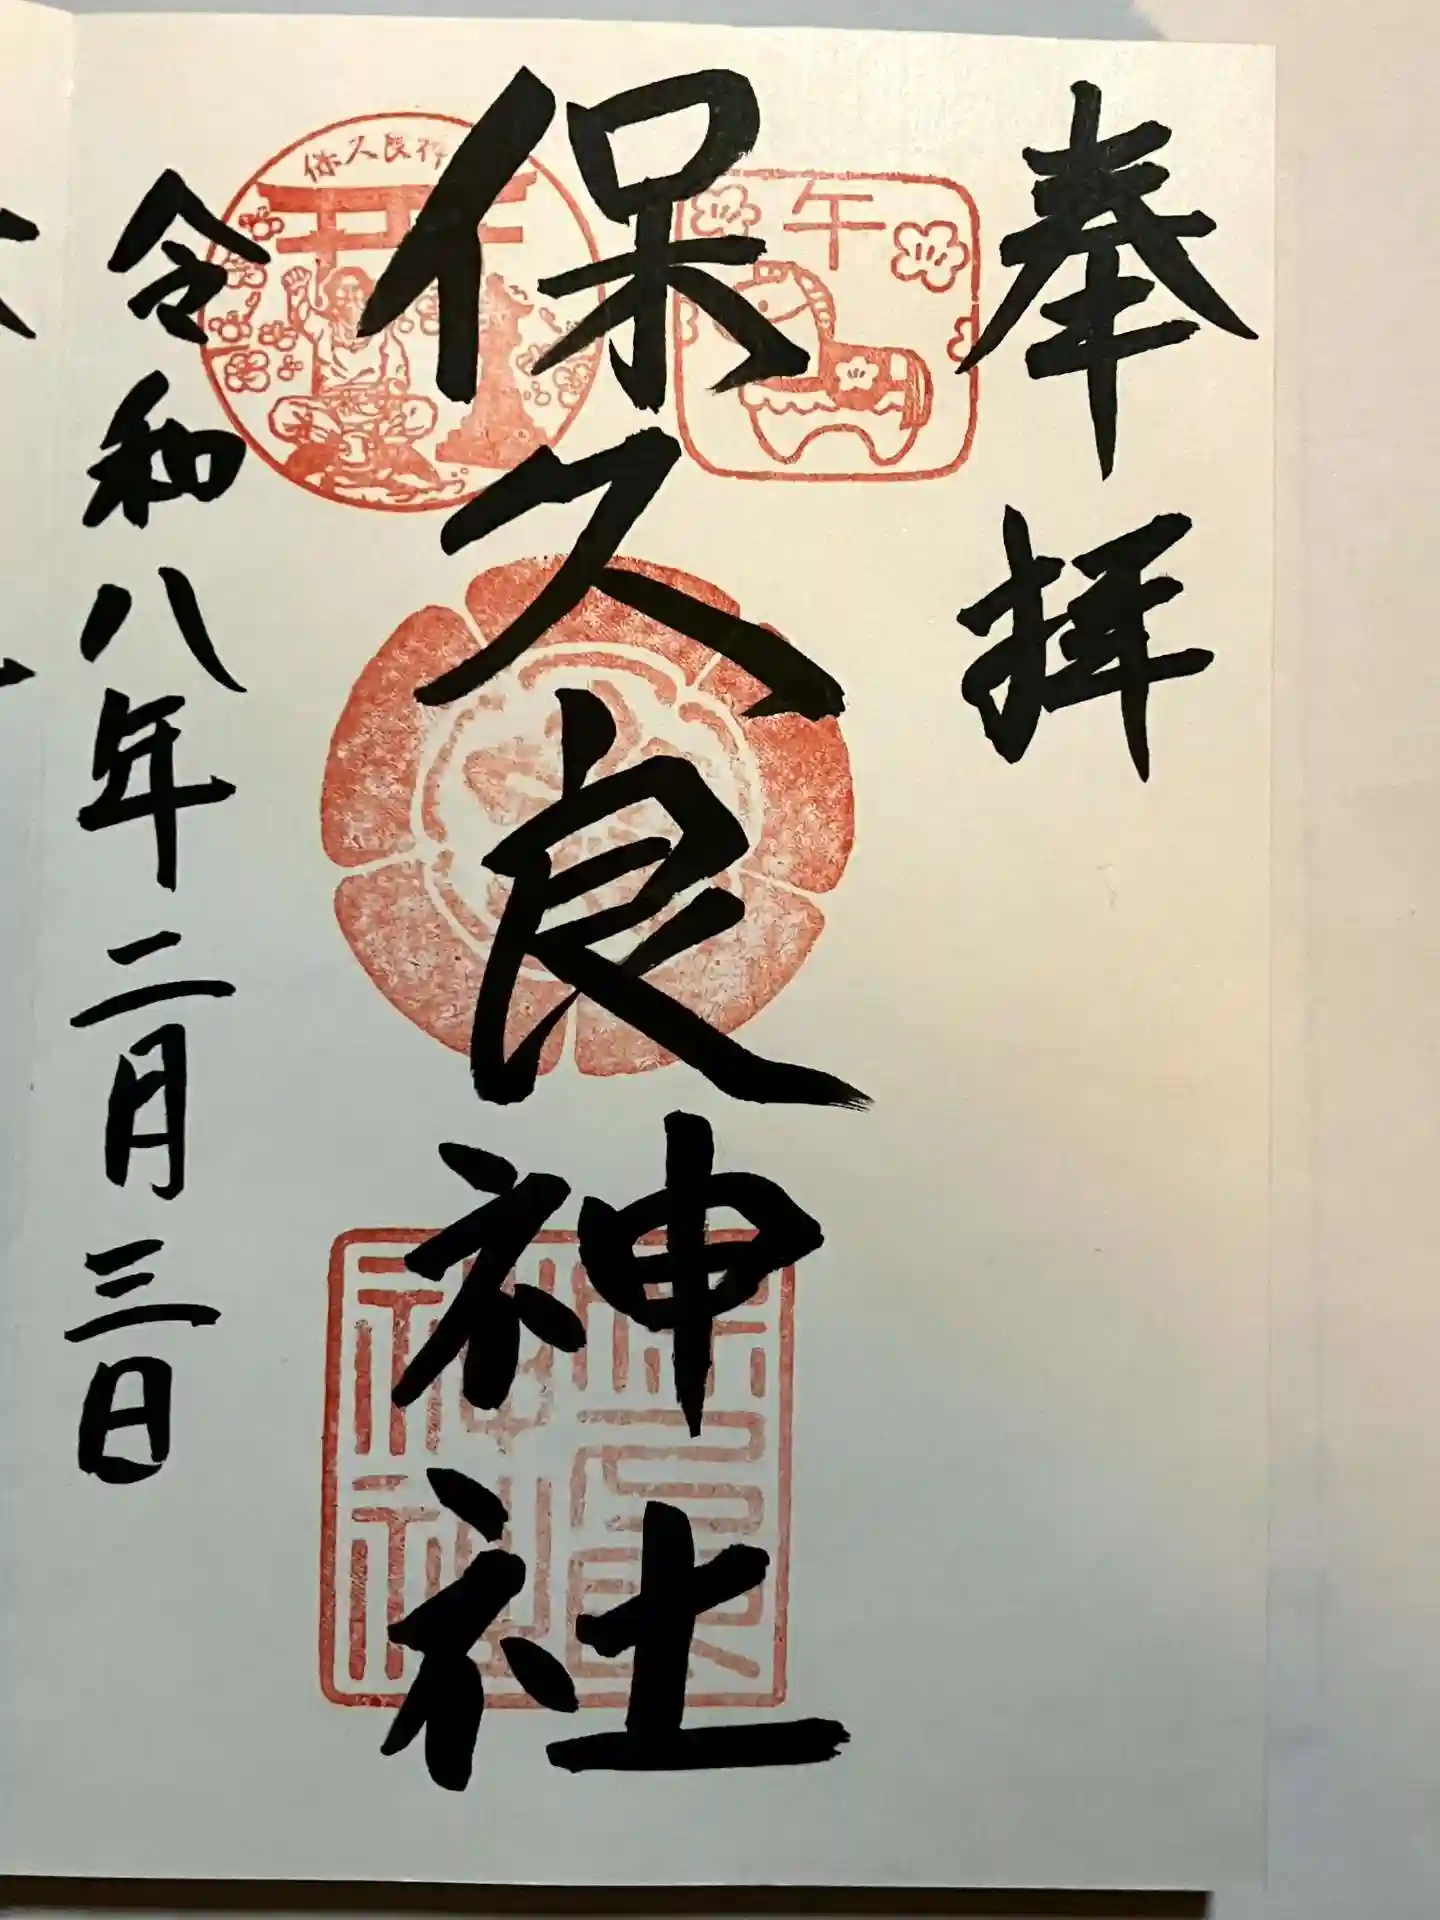 奉拝
午
保久良神社
保久良神
保久良神社
令和八年二月三日